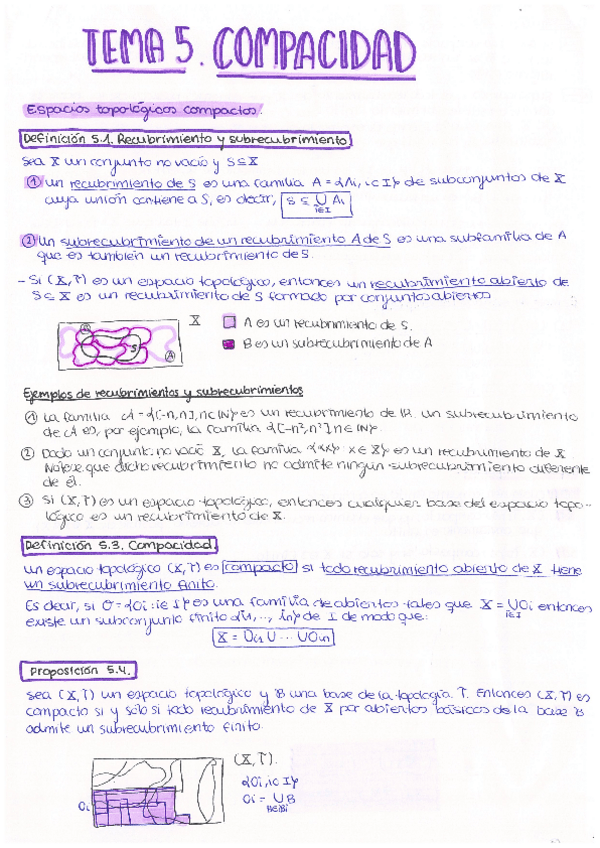 TEMA 5. COMPACIDAD
Espacios topológicos compactos.
Definición 5.1. Recubrimiento y subrecubrimiento
Sea X un conjunto no vacío y S⊆X
① Un recubrimiento de S es una familia A = {Ai, i ∈ I} de subconjuntos de X
cuya unión contiene a S, es decir, S ⊆ ∪ Ai
i∈I
② Un subrecubrimiento de un recubrimiento A de S es una subfamilia de A
que es también un recubrimiento de S.
- Si (X,T) es un espacio topológico, entonces un recubrimiento abierto de
S⊆X es un recubrimiento de S formado por conjuntos abiertos
X
A es un recubrimiento de S.
S
A
B es un subrecubrimiento de A
Ejemplos de recubrimientos y subrecubrimientos
① La familia A = {[-n,n], n∈ℕ} es un recubrimiento de ℝ. un subrecubrimiento
de A es, por ejemplo, la familia {[-n²,n²], n∈ℕ}.
② Dado un conjunto no vacío X, la familia {{x} : x∈X} es un recubrimiento de X
Nótese que dicho recubrimiento no admite ningún subrecubrimiento diferente
de él.
③ Si (X,T) es un espacio topológico, entonces cualquier base del espacio topo-
lógico es un recubrimiento de X.
Definición 5.3. Compacidad
Un espacio topológico (X,T) es compacto si todo recubrimiento abierto de X tiene
un subrecubrimiento finito.
Es decir, si O = {Oi : i∈I} es una familia de abiertos tales que X = ∪Oi entonces
i∈I
existe un subconjunto finito {i1, ..., in} de I de modo que:
X = Oi1 ∪ ... ∪ Oin
Proposición 5.4.
Sea (X,T) un espacio topológico y B una base de la topología T. Entonces (X,T) es
compacto si y sólo si todo recubrimiento de X por abiertos básicos de la base B
admite un subrecubrimiento finito.
(X,T).
{Oi, i∈I}
Oi
Oi = ∪ B
B∈Bi